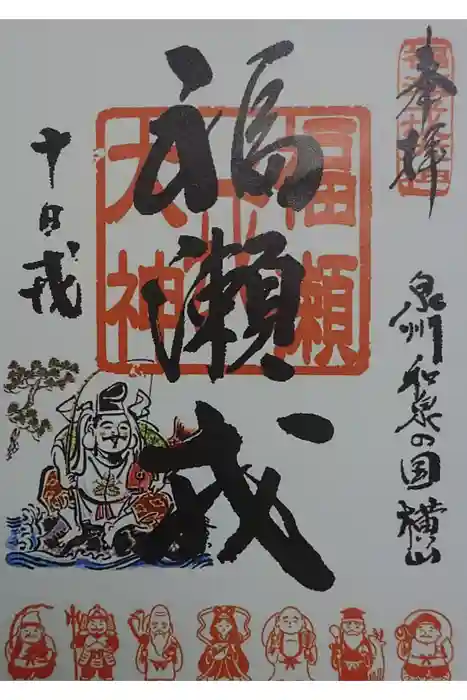 奉拝
泉州和泉の国横山
福瀬戎
十日戎
福瀬
大神